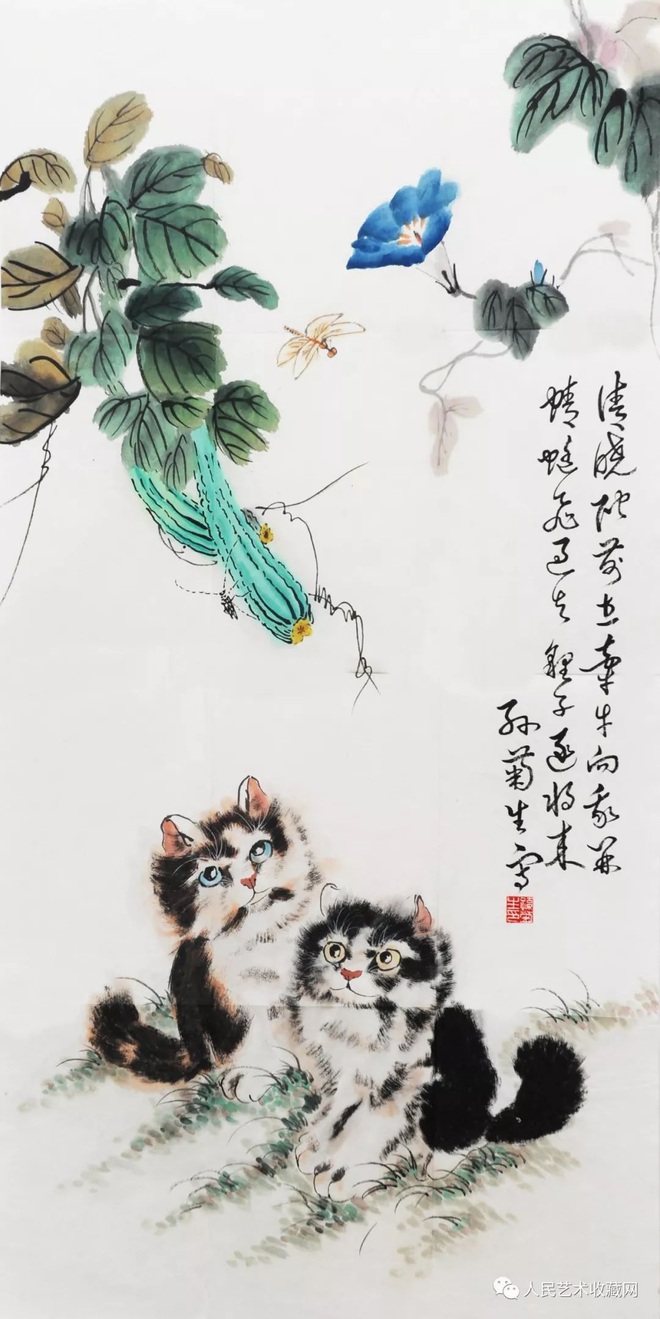 清晓阶前立牵牛向我开
蜻蜓飞过去狸子逐将来
孙菊生写
人民艺术收藏网